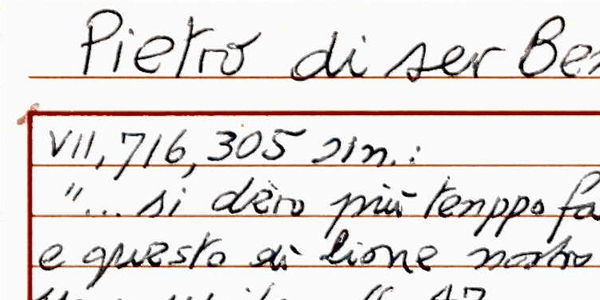 Pietro di ser Be
VII, 716, 305 sin.:
"... si dèro più tenppo fa
e questo di lione nostro